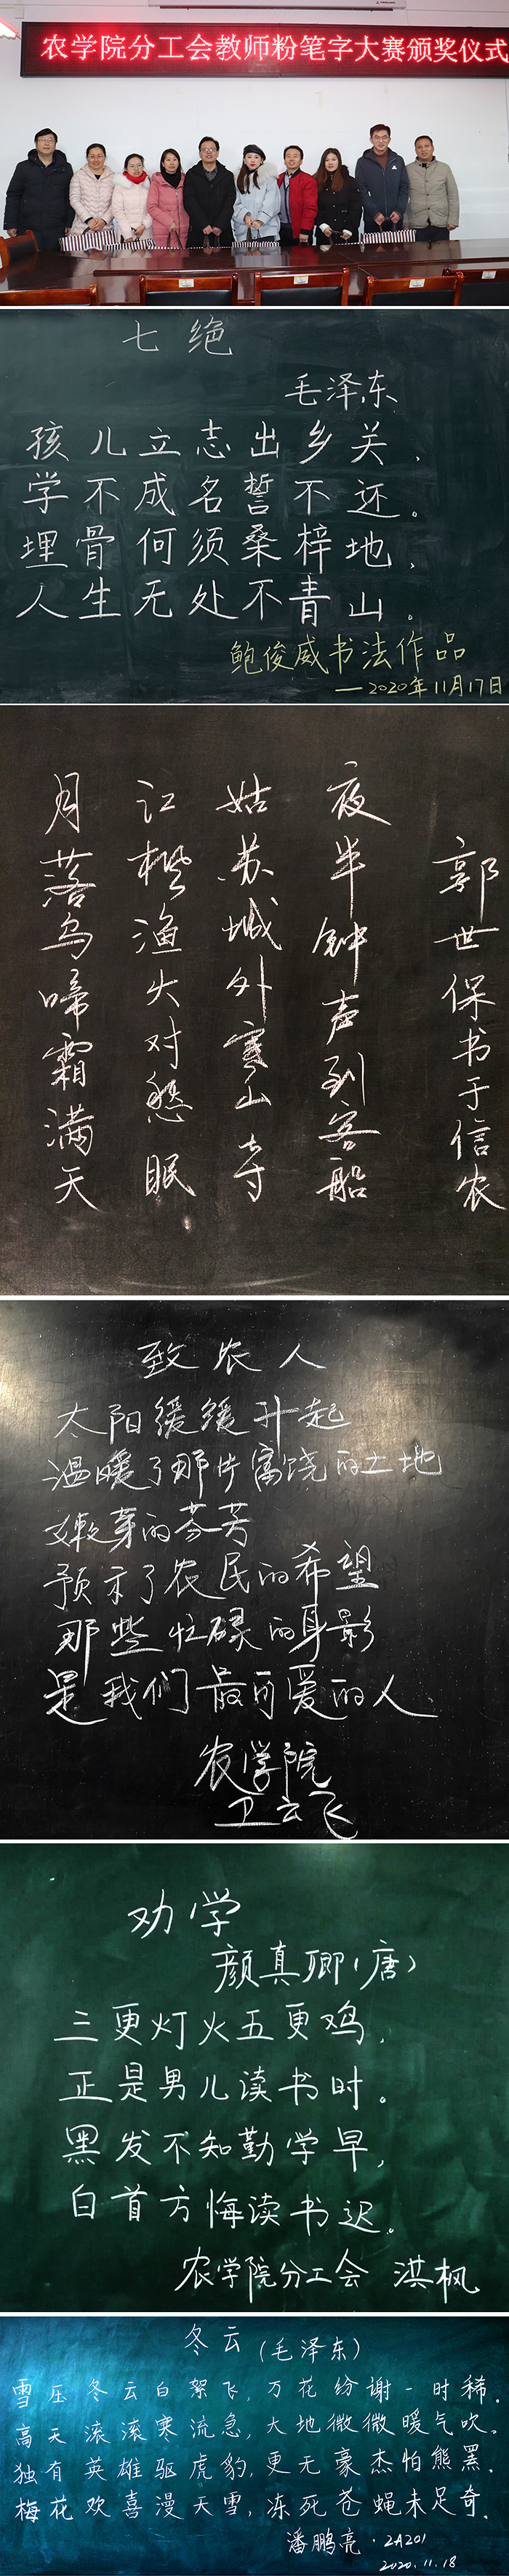 农学院分工会教师粉笔字大赛颁奖仪式
七绝
毛泽东
孩儿立志出乡关，
学不成名誓不还。
埋骨何须桑梓地，
人生无处不青山。
鲍俊威书法作品
—2020年11月17日
月落乌啼霜满天
江枫渔火对愁眠
姑苏城外寒山寺
夜半钟声到客船
郭世保书于信农
致农人
太阳缓缓升起
温暖了那片富饶的土地
嫩芽的芬芳
预示了农民的希望
那些忙碌的身影
是我们最可爱的人
农学院
卫云飞
劝学
颜真卿(唐)
三更灯火五更鸡，
正是男儿读书时。
黑发不知勤学早，
白首方悔读书迟。
农学院分工会 洪枫
冬云(毛泽东)
雪压冬云白絮飞，万花纷谢一时稀。
高天滚滚寒流急，大地微微暖气吹。
独有英雄驱虎豹，更无豪杰怕熊罴。
梅花欢喜漫天雪，冻死苍蝇未足奇。
潘鹏亮·2A201
2020.11.18